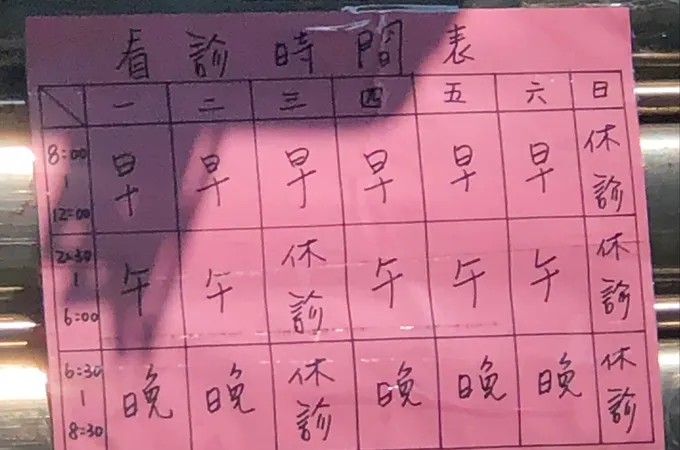 看診時間表
一 二 三 四 五 六 日
8:00 | 12:00 早 早 早 早 早 早 休診
2:30 | 6:00 午 午 休診 午 午 午 休診
6:30 | 8:30 晚 晚 休診 晚 晚 晚 休診